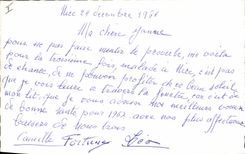 I
Nice 29 décembre 1961
Ma chère Jeanne
pour ne pas faire mentir le proverbe, me voilà
pour la troisième fois, malade à Nice, c'est pas
de chance, de ne pouvoir profiter du beau soleil
que je vous envoie à travers la fenêtre, car c'est de
mon lit, que je vous adresse nos meilleurs vœux
de bonne santé pour 1962 avec nos plus affectueux
baisers de nous tous
Camille Fortuney Léon